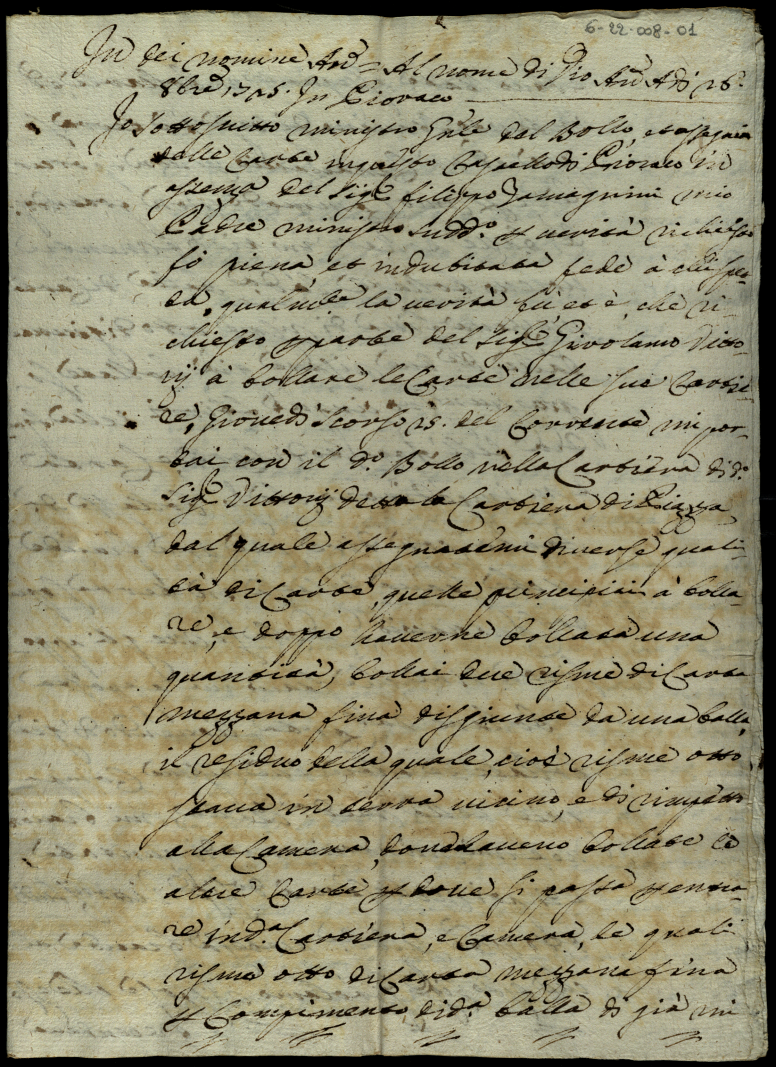 6-22-008-01
In dei nomine Am.ⁿ = Al nome di Dio Am.ⁿ Adi 28.
8bre 1725. In Pioraco
Io sottoscritto ministro Gnle del Bollo, et assegnia
delle Carte in questo Castello di Pioraco in
assenza del Sigre filippo Tamagnini mio
Padre ministro sudd.º p verità richiesto
fò piena, et indubitata fede à chi spet-
ta, qualmte la verità fù, et è, che ri-
chiesto p parte del Sigre Girolamo Vitto-
rij à bollare le Carte nelle sue Cartie-
re, Giovedì scorso 25. del Corrente mi por-
tai con il d.º Bollo nella Cartiera di d.º
Sigre Vittorij detta la Cartiera di Piazza
dal quale assegnatemi diverse quali-
tà di Carte, quelle principiai à bolla-
re, e doppo haverne bollata una
quantità, bollai due risme di Carta
mezzana fina disgiunte da una balla,
il residuo della quale, cioè risme otto
stava in terra vicino, e di rimpetto
alla Camera, dove havevo bollate le
altre Carte p dove si passa p entra-
re in d.ª Cartiera, e Camera, le quali
risme otto di Carta mezzana fina
p Compimento di d.ª balla di già mi